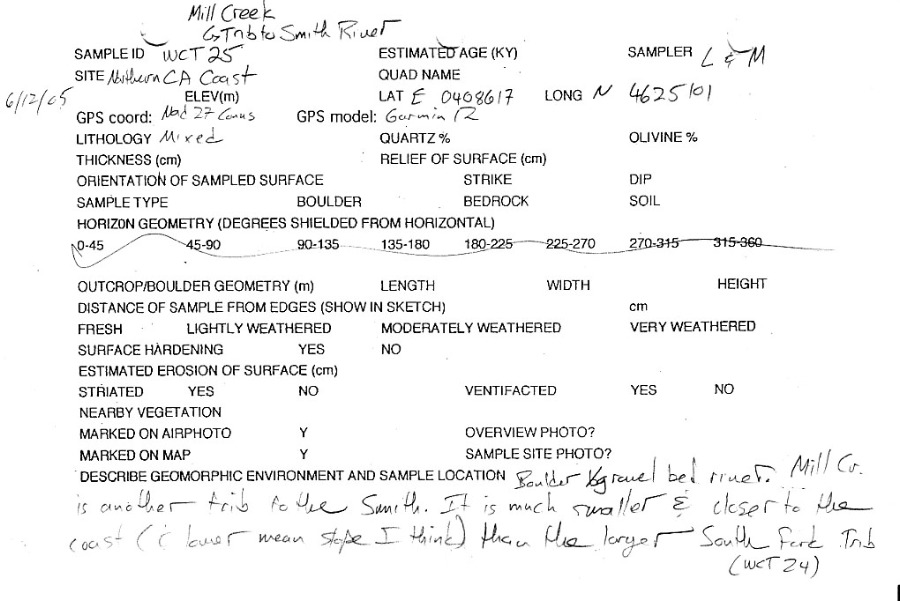 Mill Creek
Trib to Smith River
SAMPLE ID WCT25 ESTIMATED AGE (KY) SAMPLER L & M
SITE Northern CA Coast QUAD NAME
6/12/05 ELEV(m) LAT E 0408617 LONG N 4625101
GPS coord: Nad 27 Conus GPS model: Garmin 12
LITHOLOGY Mixed QUARTZ % OLIVINE %
THICKNESS (cm) RELIEF OF SURFACE (cm)
ORIENTATION OF SAMPLED SURFACE STRIKE DIP
SAMPLE TYPE BOULDER BEDROCK SOIL
HORIZON GEOMETRY (DEGREES SHIELDED FROM HORIZONTAL)
0-45 45-90 90-135 135-180 180-225 225-270 270-315 315-360
OUTCROP/BOULDER GEOMETRY (m) LENGTH WIDTH HEIGHT
DISTANCE OF SAMPLE FROM EDGES (SHOW IN SKETCH) cm
FRESH LIGHTLY WEATHERED MODERATELY WEATHERED VERY WEATHERED
SURFACE HARDENING YES NO
ESTIMATED EROSION OF SURFACE (cm)
STRIATED YES NO VENTIFACTED YES NO
NEARBY VEGETATION
MARKED ON AIRPHOTO Y OVERVIEW PHOTO?
MARKED ON MAP Y SAMPLE SITE PHOTO?
DESCRIBE GEOMORPHIC ENVIRONMENT AND SAMPLE LOCATION Boulder gravel bed river. Mill Cr.
is another trib to the Smith. It is much smaller & closer to the
coast (lower mean slope I think) than the larger South Fork Trib
(WCT24)